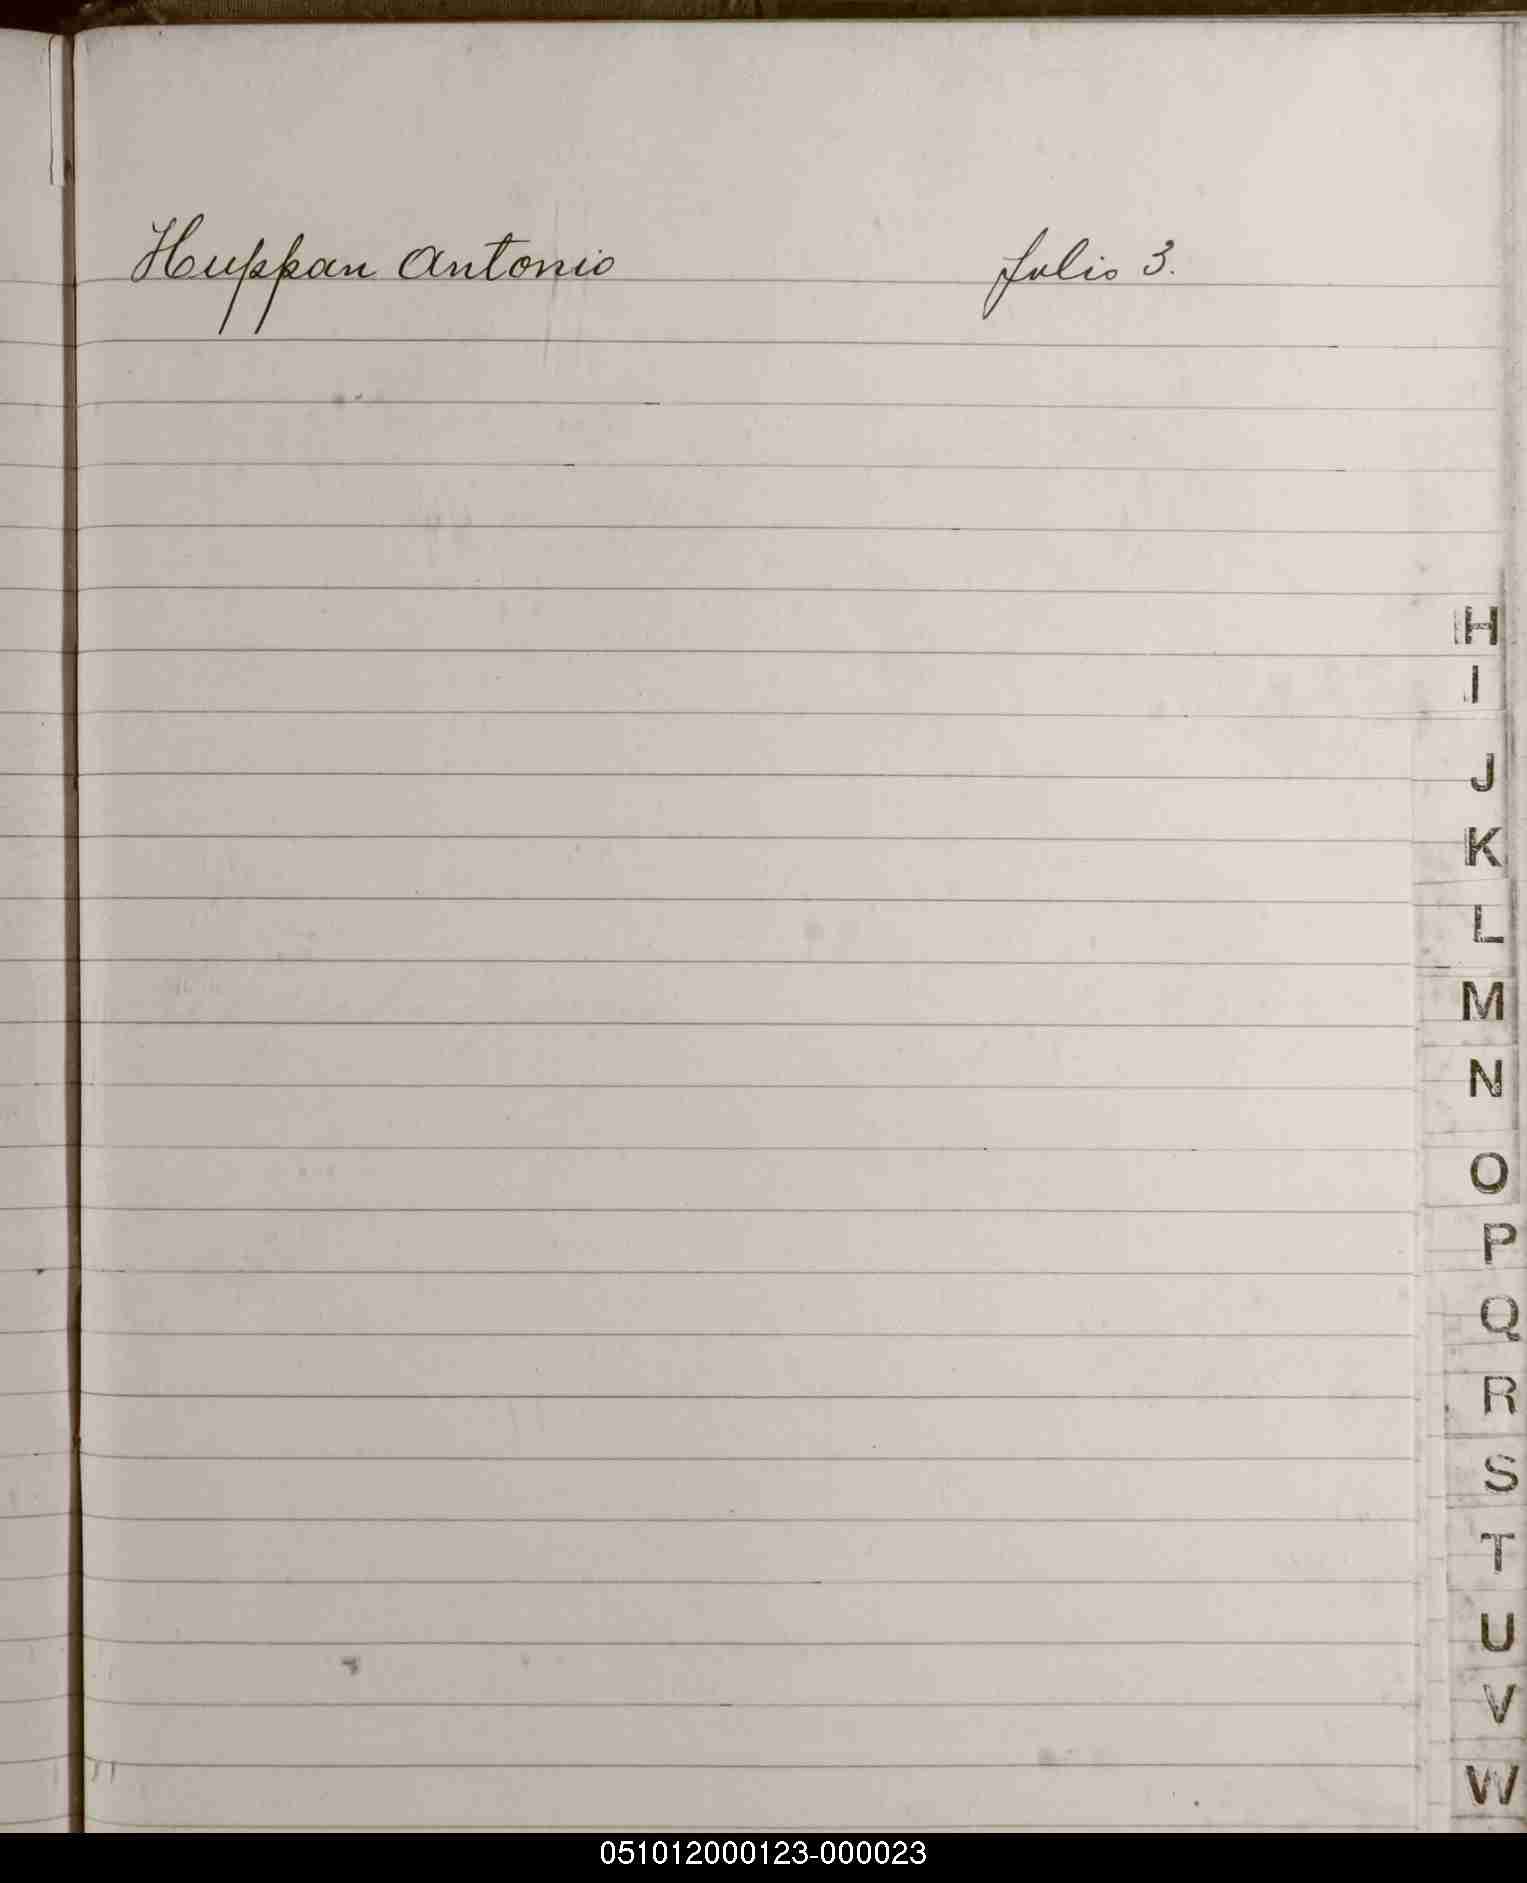 Huppan Antonio Julio 3.
H
I
J
K
L
M
N
O
P
Q
R
S
T
U
V
W
051012000123-000023